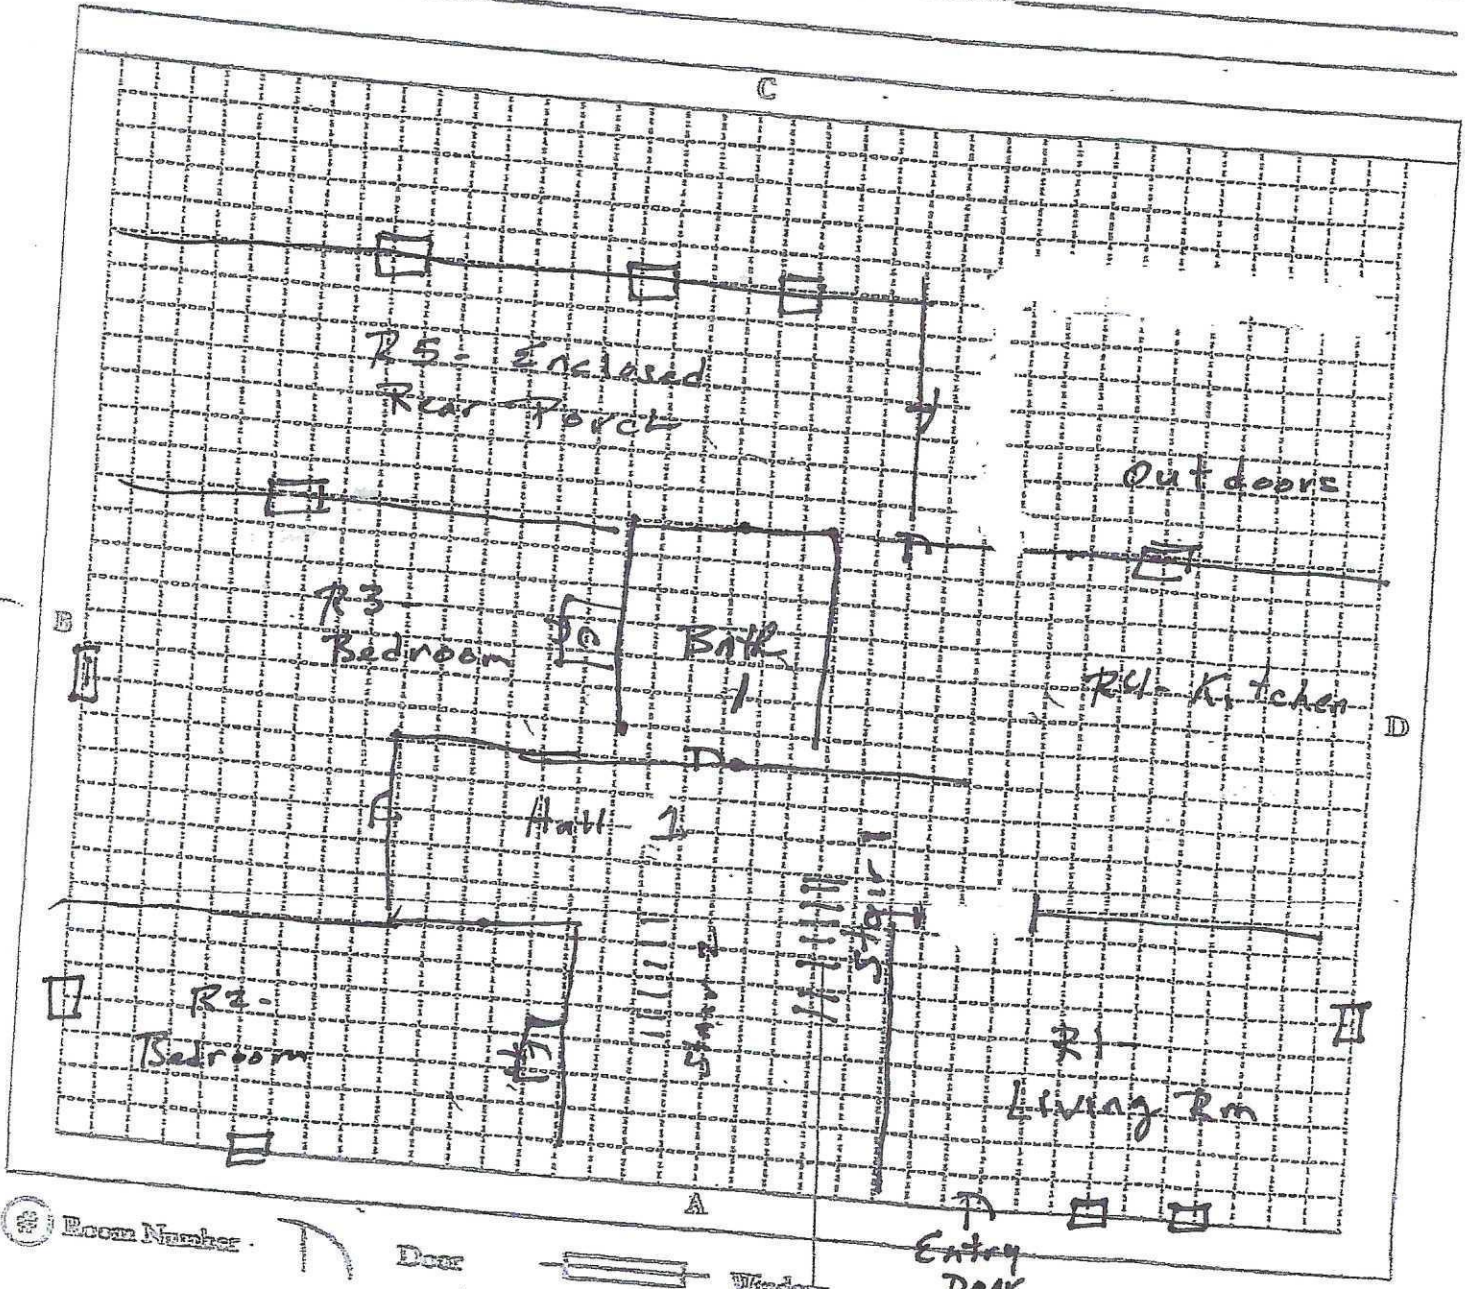 C
R5- Enclosed
Rear Porch
Outdoors
B
R3
Bedroom
C
Bath
1
R4- Kitchen
D
Hall- 1
Stair 1
Stair 2
R2-
Bedroom
R1-
Living Rm
A
Entry
Door
# Room Number
Door
Window